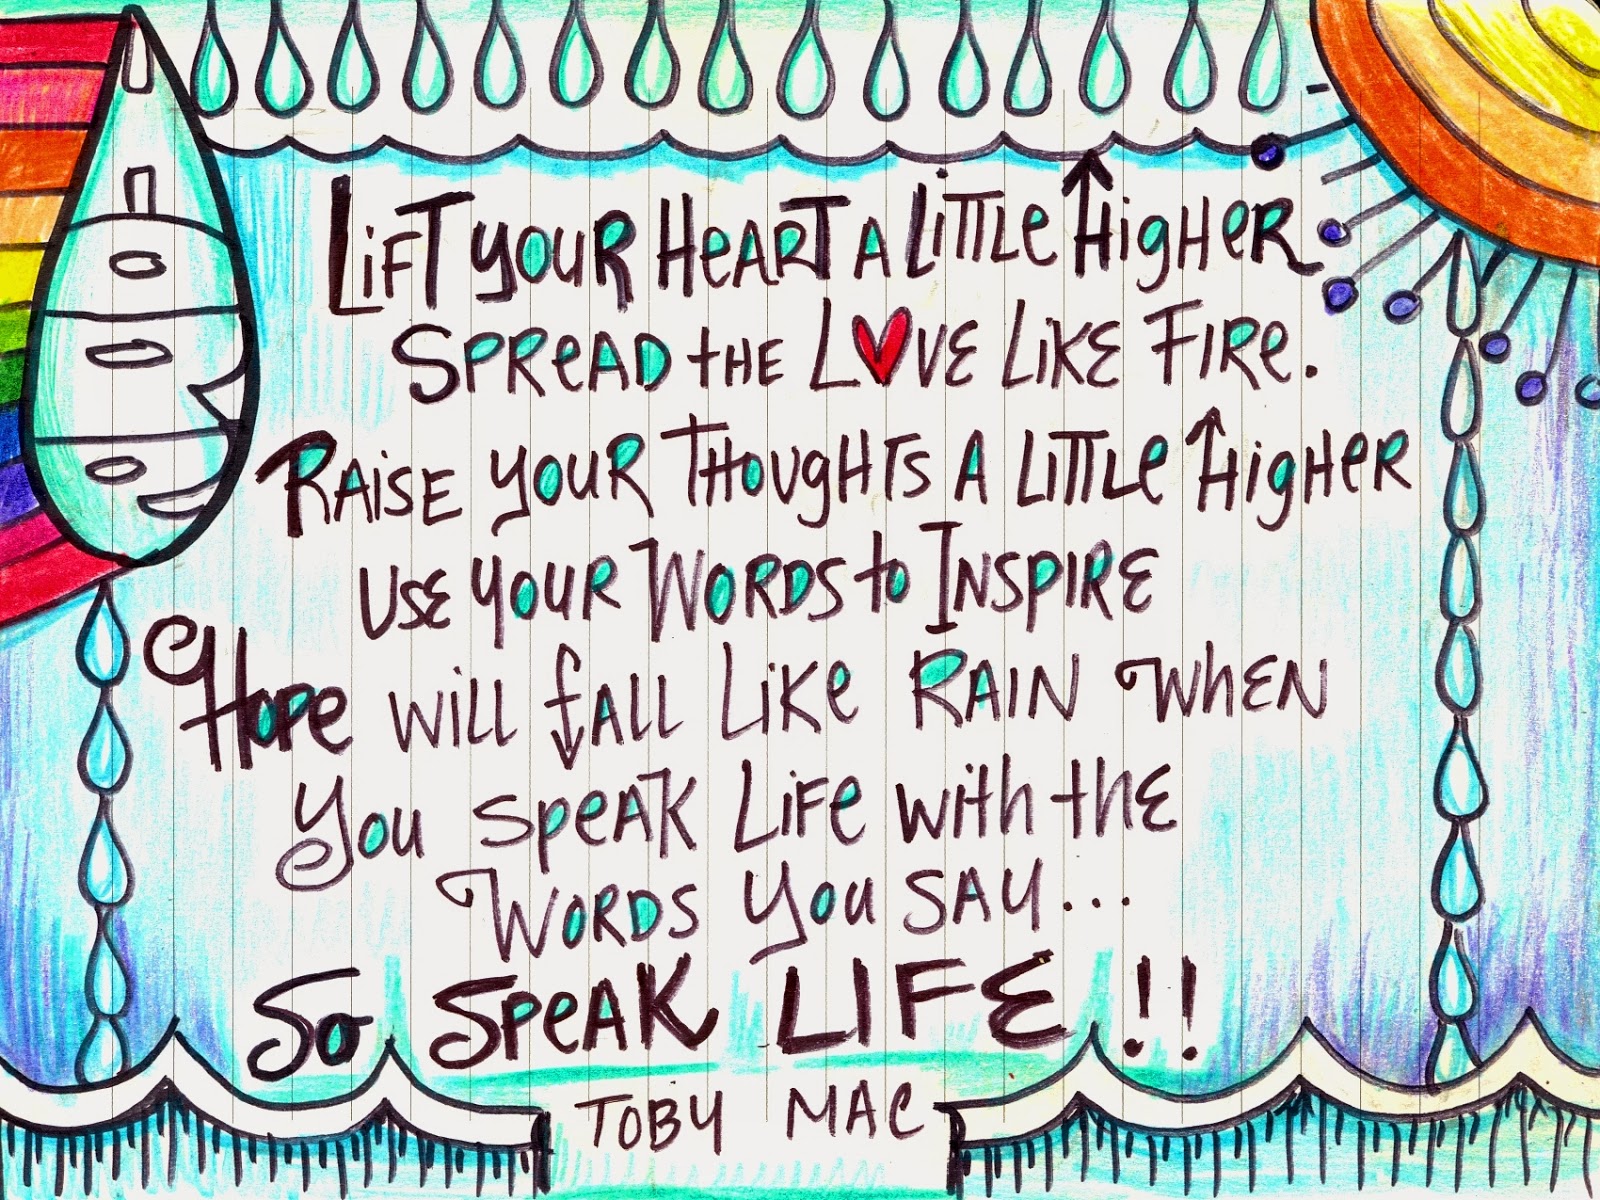 Lift your Heart a Little Higher.
Spread the Love Like Fire.
Raise your Thoughts a little Higher
Use your Words to Inspire
Hope will fall Like Rain when
You speak Life with the
Words You say...
So Speak LIFE!!
TOBY MAC